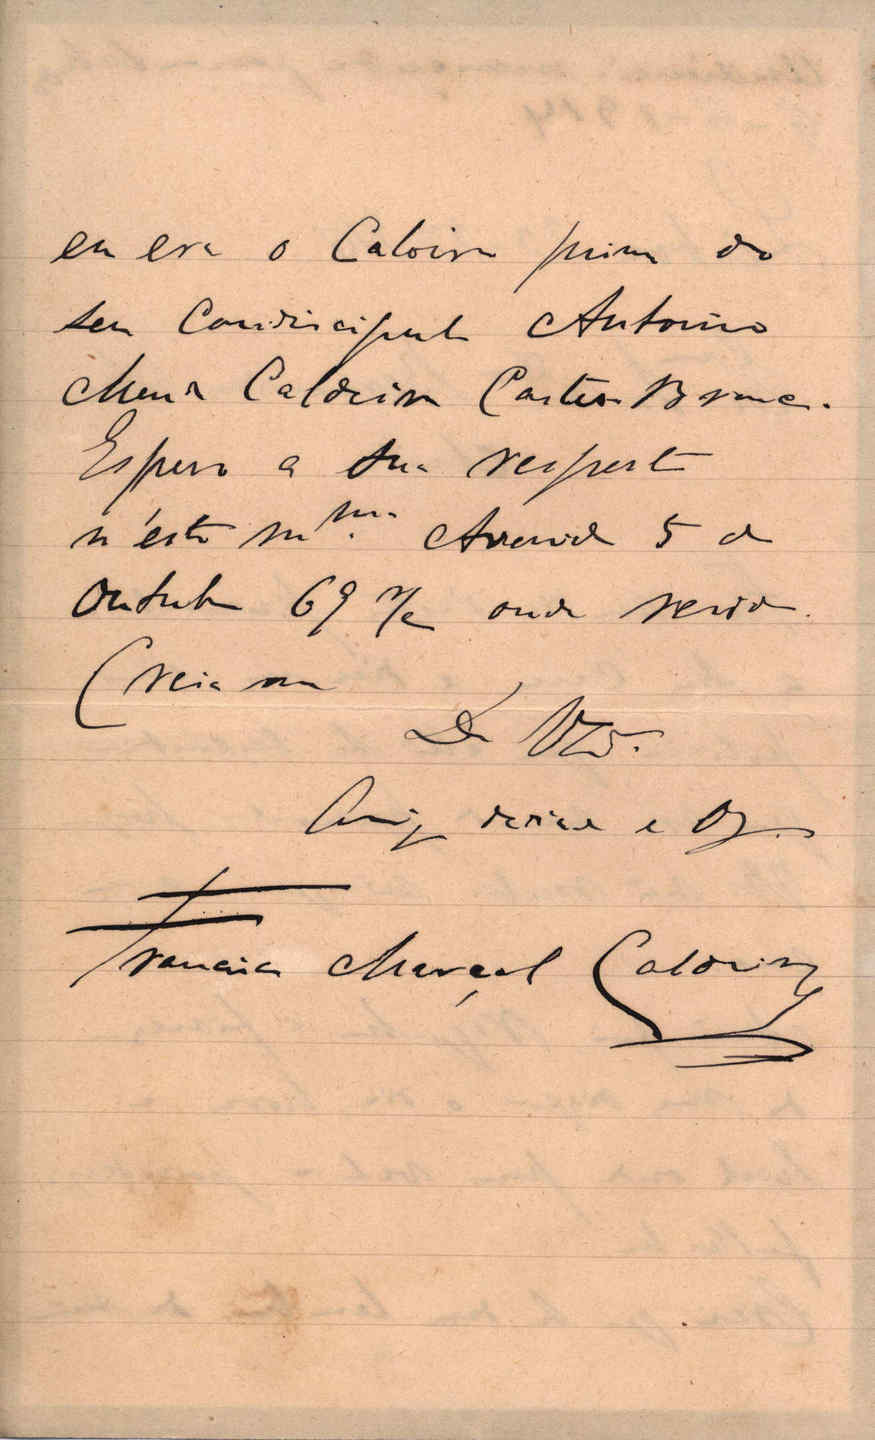 eu era o Caloiro primo do
seu Condiscipulo Antonio
Maria Caldeira Castel Branco.
Espero a sua resposta
n'este m.mo Avenida 5 d
Outubro 69 r/c onde resido.
Creia me
De V.
Amig e
Francisco Marçal Caldeira